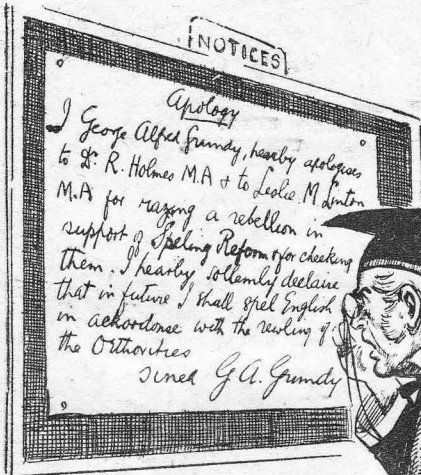 NOTICES
Apology
I George Alfred Grundy, hearby apologises
to Dr. R. Holmes M.A & to Leslie M Linton
M.A for razing a rebellion in
support of Speling Reform & for cheeking
them. I hearby sollemly declaire
that in future I shall spel English
in ackordonse with the rewling of
the Orthorities
sined G A. Grundy